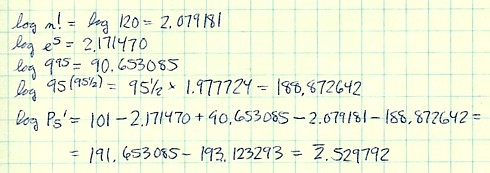 log n! = log 120 = 2.079181
log e⁵ = 2.171470
log 9⁹⁵ = 90.653085
log 95^(95½) = 95½ × 1.977724 = 188.872642
log P₅' = 101 - 2.171470 + 90.653085 - 2.079181 - 188.872642 =
= 191.653085 - 193.123293 = 2̅.529792